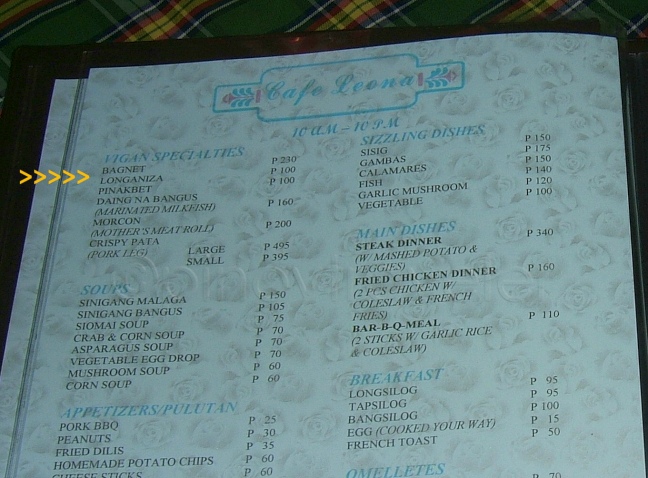 Cafe Leona
10 A.M – 10 PM
>>>>>
VIGAN SPECIALTIES
BAGNET P 230
LONGANIZA P 100
PINAKBET P 100
DAING NA BANGUS P 160
(MARINATED MILKFISH)
MORCON P 200
(MOTHER'S MEAT ROLL)
CRISPY PATA
(PORK LEG) LARGE P 495
SMALL P 395
SOUPS
SINIGANG MALAGA P 150
SINIGANG BANGUS P 105
SIOMAI SOUP P 75
CRAB & CORN SOUP P 70
ASPARAGUS SOUP P 70
VEGETABLE EGG DROP P 70
MUSHROOM SOUP P 60
CORN SOUP P 60
APPETIZERS/PULUTAN
PORK BBQ P 25
PEANUTS P 30
FRIED DILIS P 35
HOMEMADE POTATO CHIPS P 60
CHEESE STICKS P 60
SIZZLING DISHES
SISIG P 150
GAMBAS P 175
CALAMARES P 150
FISH P 140
GARLIC MUSHROOM P 120
VEGETABLE P 100
MAIN DISHES
STEAK DINNER P 340
(W/ MASHED POTATO &
VEGGIES)
FRIED CHICKEN DINNER P 160
(2 PCS CHICKEN W/
COLESLAW & FRENCH
FRIES)
BAR-B-Q-MEAL P 110
(2 STICKS W/ GARLIC RICE
& COLESLAW)
BREAKFAST
LONGSILOG P 95
TAPSILOG P 95
BANGSILOG P 100
EGG (COOKED YOUR WAY) P 15
FRENCH TOAST P 50
OMELLETES
P 70